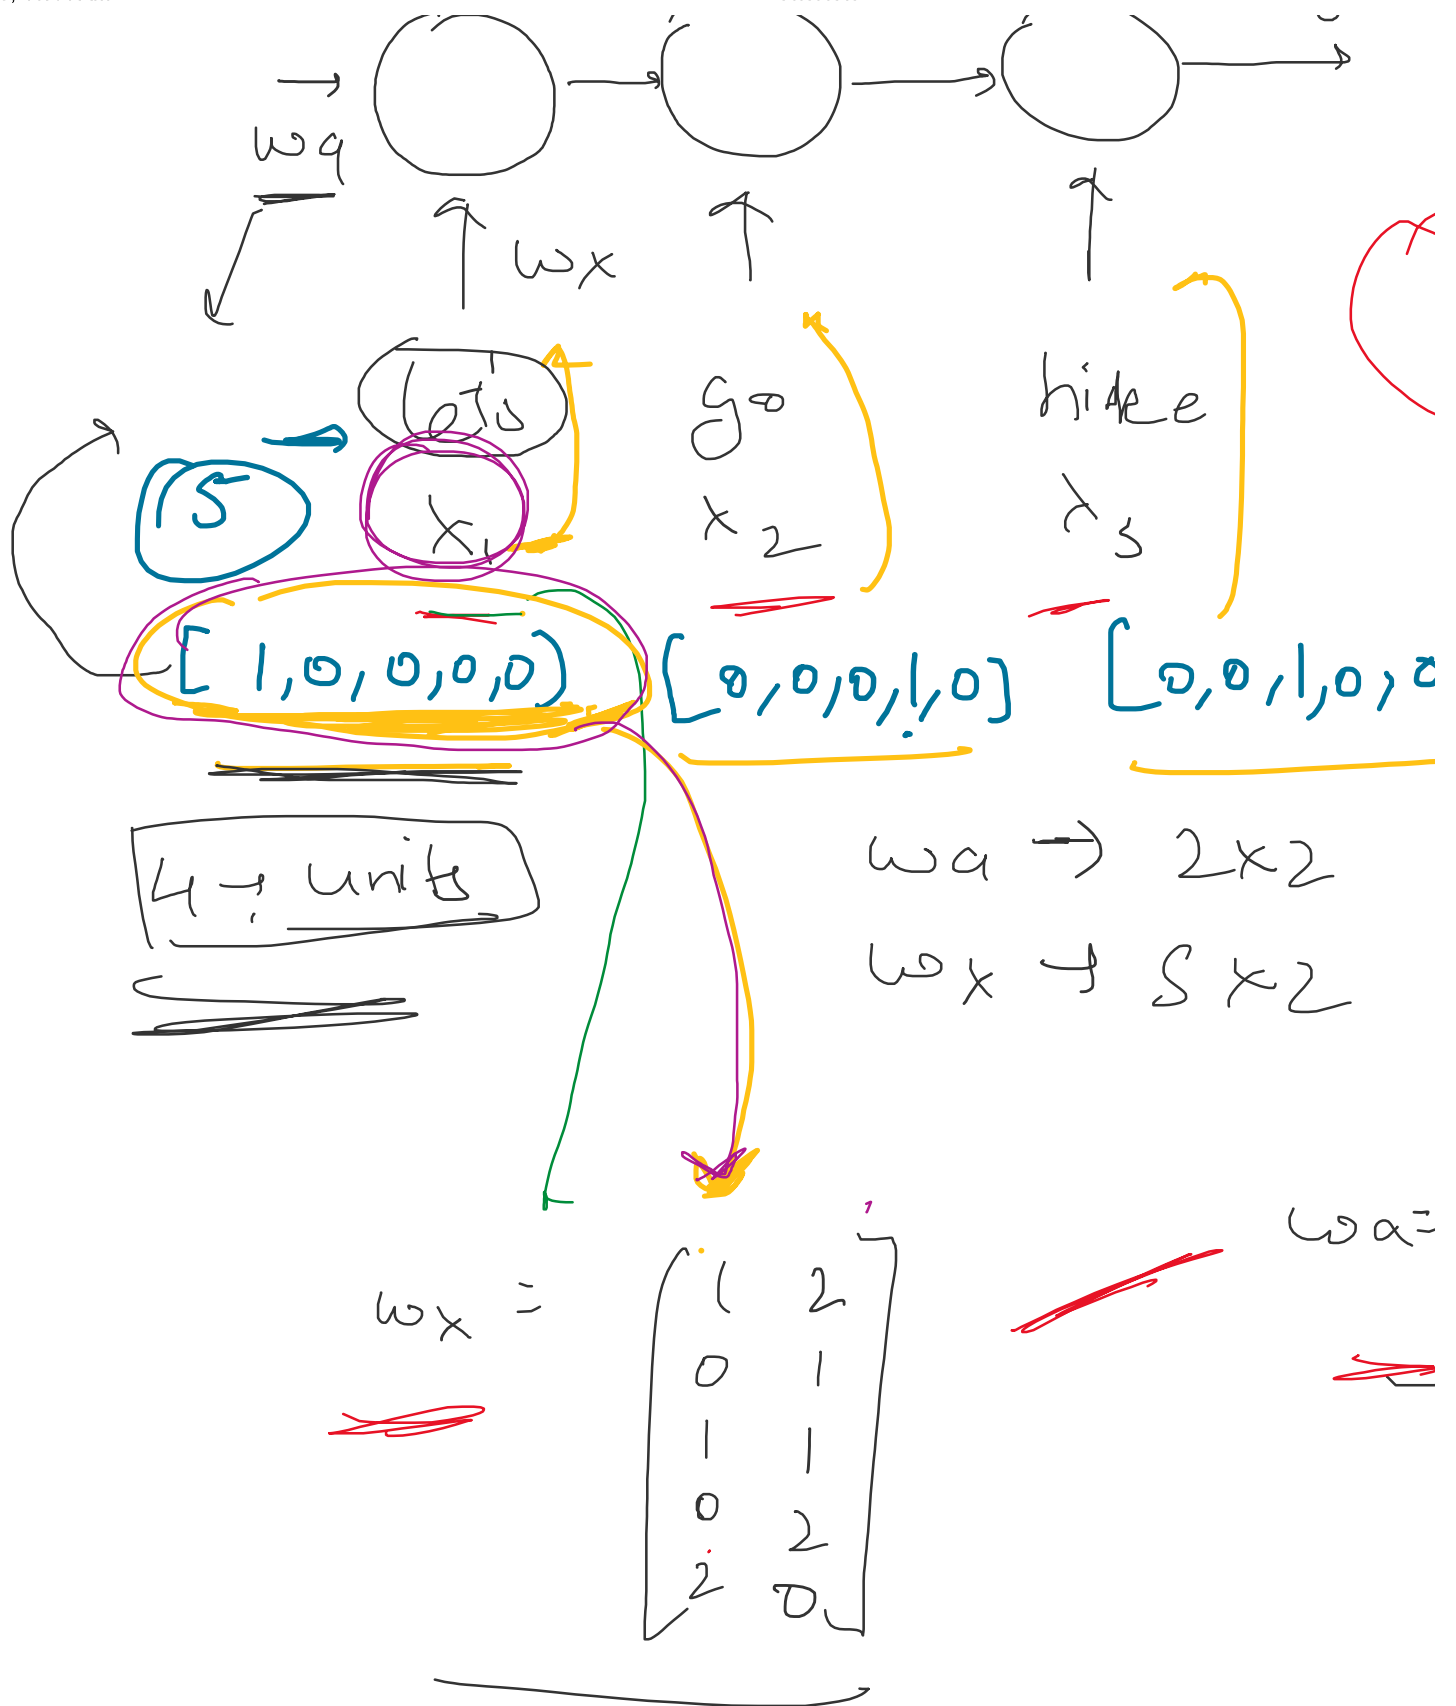 wa
wx
let's go hike
5 x1 x2 x3
[1,0,0,0,0] [0,0,0,1,0] [0,0,1,0,0
4 → units
wa → 2x2
wx → 5x2
wa=
wx =
1 2
0 1
1 1
0 2
2 0